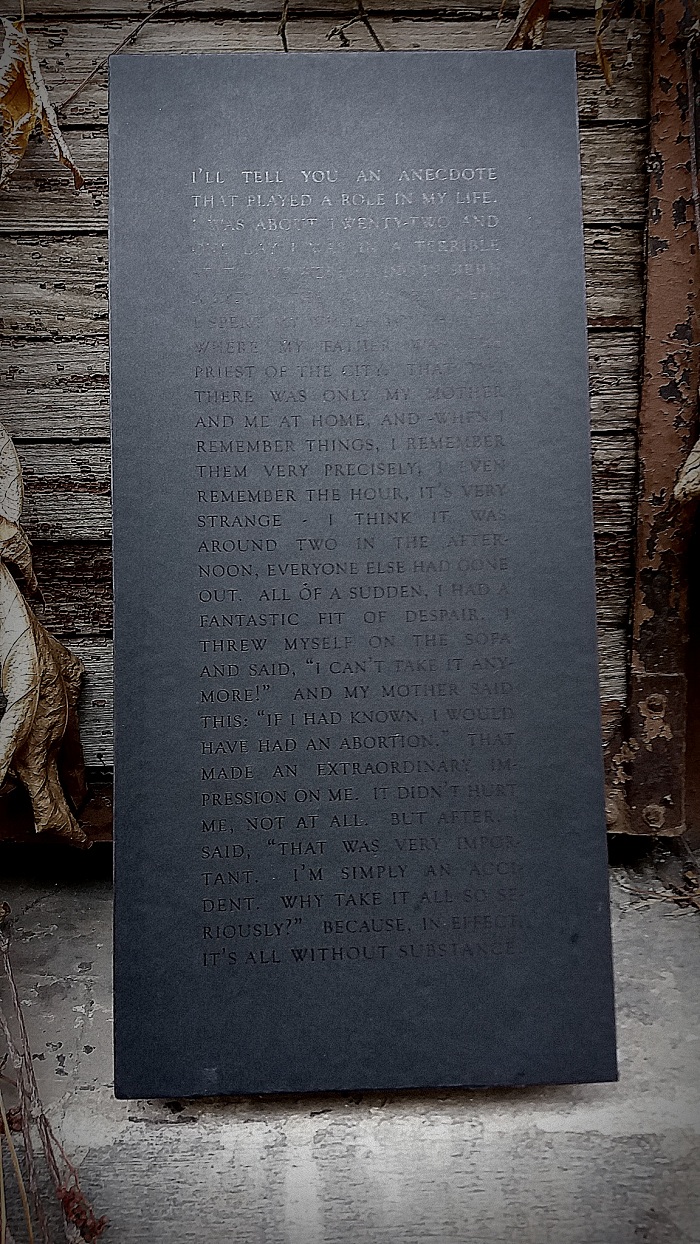 I'LL TELL YOU AN ANECDOTE
THAT PLAYED A ROLE IN MY LIFE.
I WAS ABOUT TWENTY-TWO AND
ONE DAY I WAS IN A TERRIBLE
WHERE MY FATHER WAS
PRIEST OF THE CITY. THAT
THERE WAS ONLY MY MOTHER
AND ME AT HOME, AND -WHEN I
REMEMBER THINGS, I REMEMBER
THEM VERY PRECISELY, I EVEN
REMEMBER THE HOUR, IT'S VERY
STRANGE - I THINK IT WAS
AROUND TWO IN THE AFTER-
NOON, EVERYONE ELSE HAD GONE
OUT. ALL OF A SUDDEN, I HAD A
FANTASTIC FIT OF DESPAIR, I
THREW MYSELF ON THE SOFA
AND SAID, "I CAN'T TAKE IT ANY-
MORE!" AND MY MOTHER SAID
THIS: "IF I HAD KNOWN, I WOULD
HAVE HAD AN ABORTION." THAT
MADE AN EXTRAORDINARY IM-
PRESSION ON ME. IT DIDN'T HURT
ME, NOT AT ALL. BUT AFTER, I
SAID, "THAT WAS VERY IMPOR-
TANT. I'M SIMPLY AN ACCI-
DENT. WHY TAKE IT ALL SO SE-
RIOUSLY?" BECAUSE, IN EFFECT,
IT'S ALL WITHOUT SUBSTANCE.